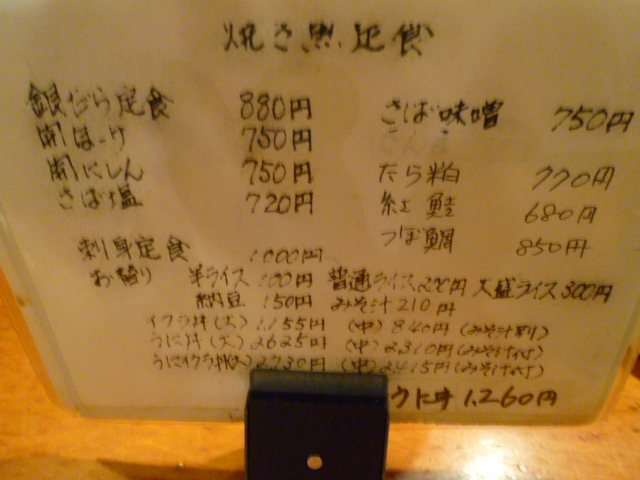 焼き魚定食
銀だら定食 880円
開ほっけ 750円
開にしん 750円
さば塩 720円
さば味噌 750円
さんま
たら粕 770円
紅鮭 680円
つぼ鯛 850円
刺身定食 1.000円
お替り 半ライス 100円 普通ライス200円 大盛ライス300円
納豆 150円 みそ汁210円
イクラ丼(大) 1.155円 (中) 840円 (みそ汁別)
うに丼(大) 2625円 (中) 2.310円(みそ汁付)
うにイクラ丼(大) 2730円 (中) 2.415円(みそ汁付)
うに丼 1.260円